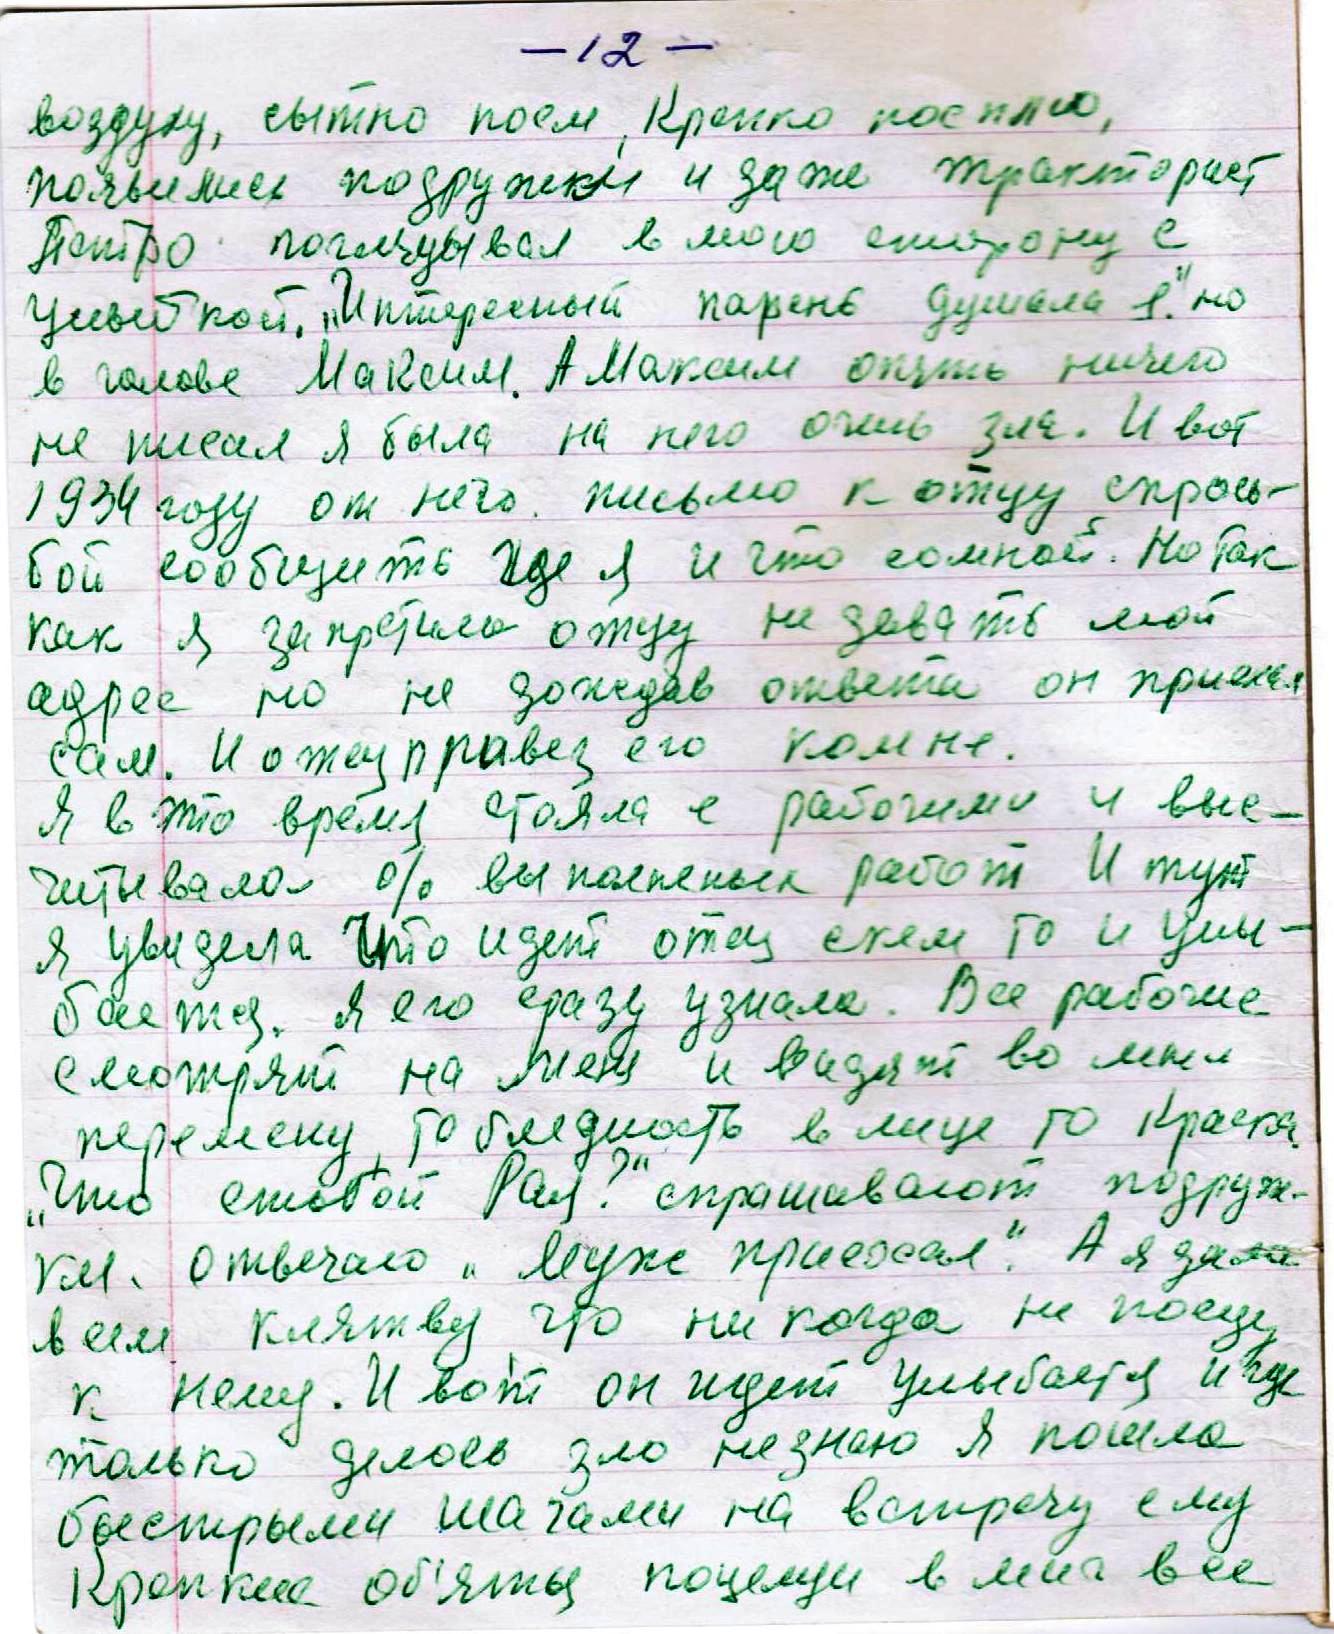 — 12 —
воздуху, сытно поем, Крепко посплю,
появились подружки и даже тракторист
Петро поглядывал в мою сторону с
улыбкой. „Интересный парень думала я." но
в голове Максим. А Максим опять ничего
не писал я была на него очень зла. И вот
1934 году от него письмо к отцу спрось-
бой сообщить где я и что сомной. Но так
как я запретила отцу не давать мой
адрес но не дождав ответа он приехал
сам. И отец правез его комне.
Я в это время стояла с рабочими и выс-
читывала % выполненых работ И тут
я увидела что идет отец скем то и улы-
бается. Я его сразу узнала. Все рабочие
смотрят на меня и видят во мне
перемену, то бледность в лице то краска.
„Что стобой Рая?" спрашивают подруж-
ки. отвечаю „Муж приехал". А я дала
всем клятву что ни когда не поеду
к нему. И вот он идет улыбается и где
только делось зло незнаю я пошла
быстрыми шагами на встречу ему
Крепкие об'ятья поцелуи в миг все